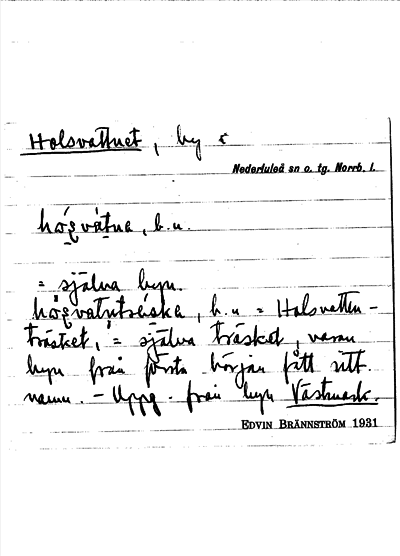 Holsvattnet, by i
Nederluleå sn o. tg. Norrb. l.
b.u.
= själva byn.
b.u = Holsvatten-
träsket, = själva träsket, varav
byn från första början fått sitt
namn. - Uppg. från byn Västmark.
EDVIN BRÄNNSTRÖM 1931